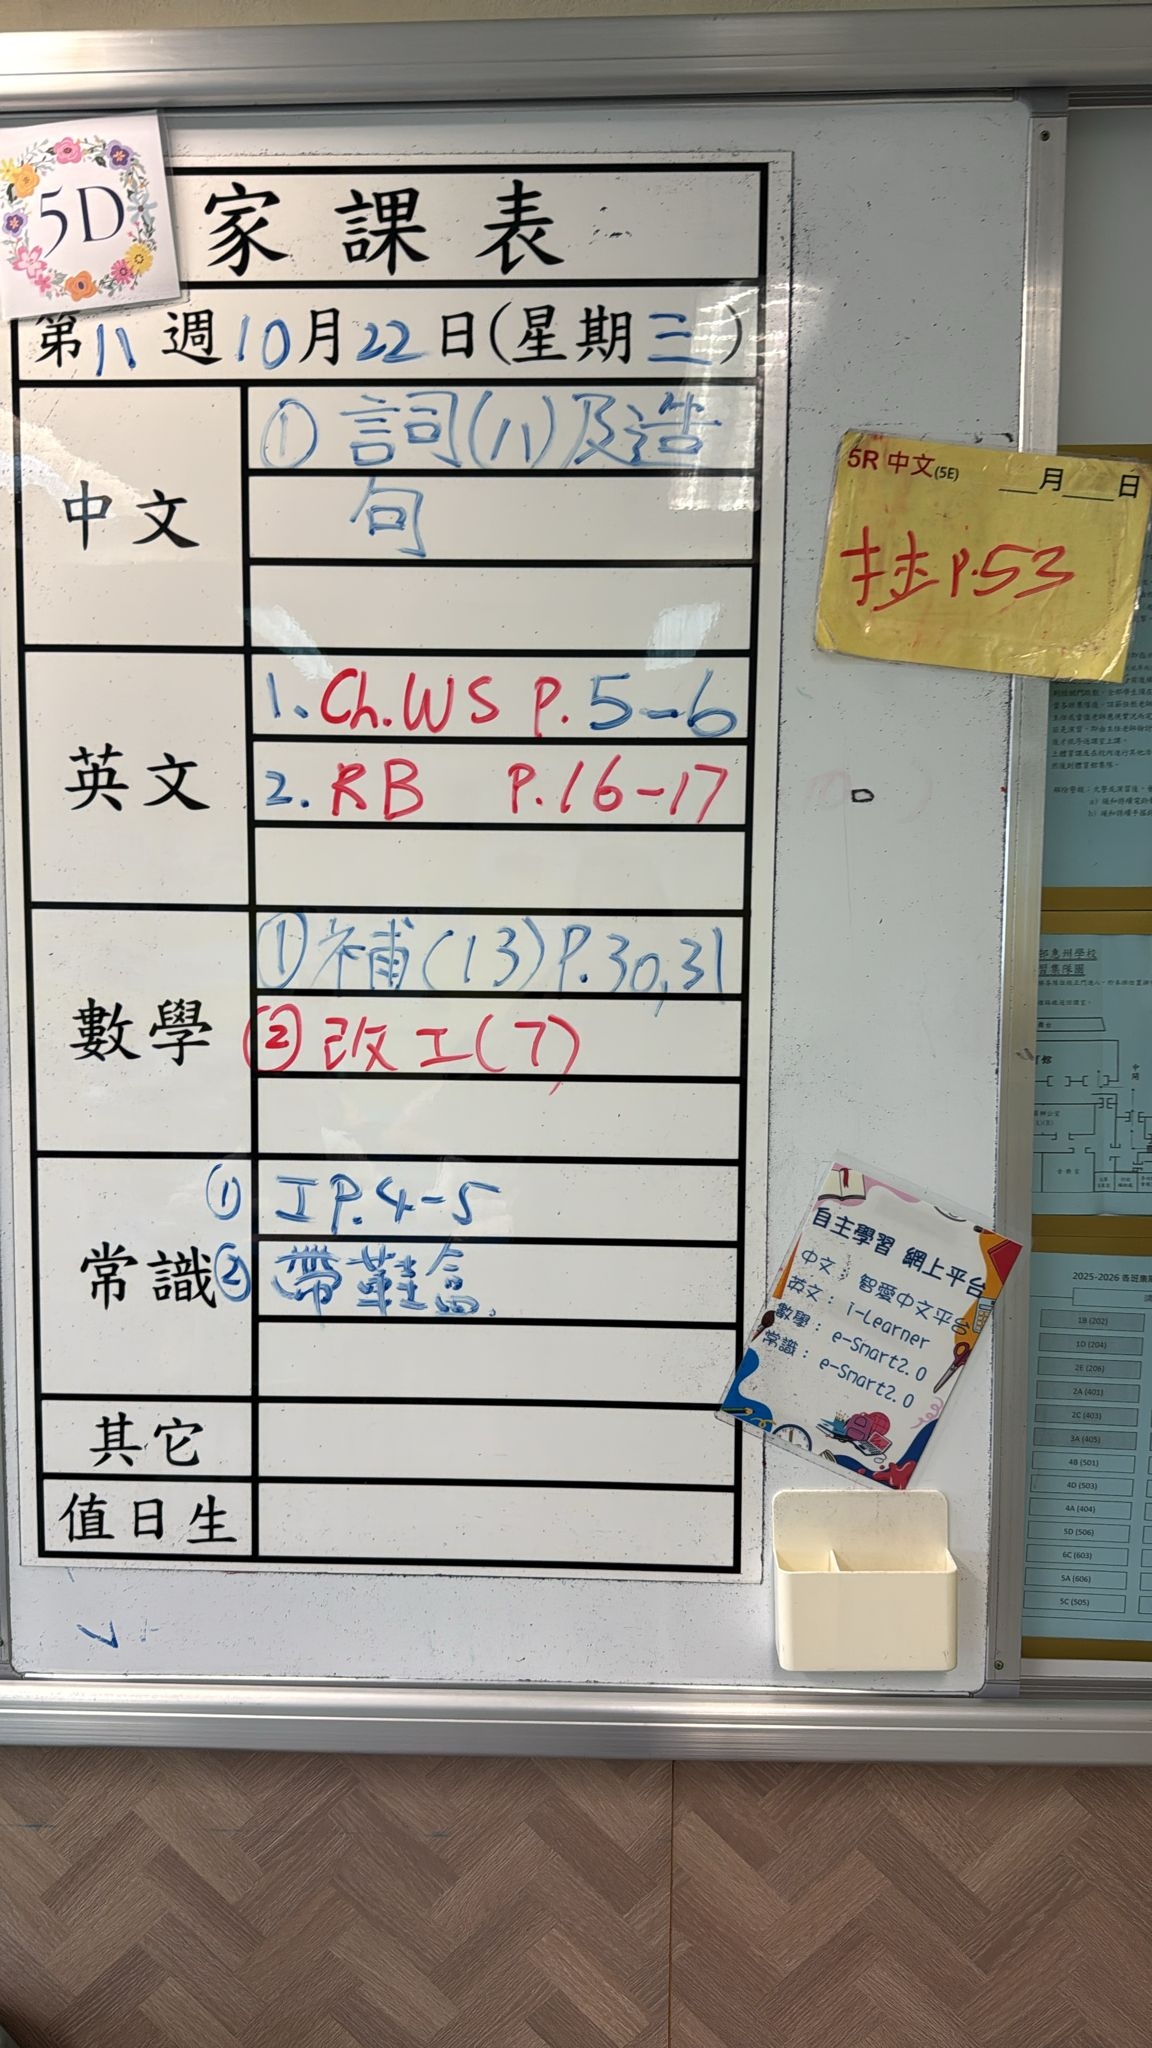 5D
家課表
第八週10月22日(星期三)
中文
① 詞(八)及造
句
英文
1. Ch.WS P. 5-6
2. RB P.16-17
數學
① 補(13)P.30,31
② 改工(7)
常識
① 工P.4-5
② 帶鞋盒.
其它
值日生
5R 中文(5E) ___月___日
P.53
自主學習 網上平台
中文：智愛中文平台
英文：i-Learner
數學：e-Smart2.0
常識：e-Smart2.0
習集隊圖
2025-2026 各班集
1B (202)
1D (204)
2E (206)
2A (401)
2C (403)
3A (405)
4B (501)
4D (503)
4A (404)
5D (506)
6C (603)
5A (606)
5C (505)